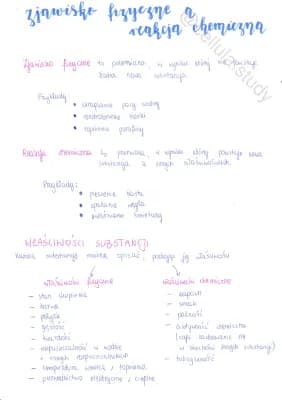 zjawisko fizyczne a
reakcja chemiczna
Zjawisko fizyczne to przemiana, w wyniku której nie powstaje
żadna nowa substancja.
Przykłady:
• skraplanie pary wodnej
• rozdrabnianie kartki
• topnienie parafiny
Reakcja chemiczna to przemiana, w wyniku której powstaje nowa
substancja o innych właściwościach.
Przykłady:
• pieczenie ciasta
• spalanie węgla
• kwaśnienie śmietany
WŁAŚCIWOŚCI SUBSTANCJI
Każdą substancję można opisać, podając jej właściwości
właściwości fizyczne
- stan skupienia
- barwa
- połysk
- gęstość
- twardość
- rozpuszczalność w wodzie
i innych rozpuszczalnikach
- temperatura wrzenia / topnienia
- przewodnictwo elektryczne i cieplne
właściwości chemiczne
- zapach
- smak
- palność
- aktywność chemiczna
w obecności innych substancji)
- toksyczność
study